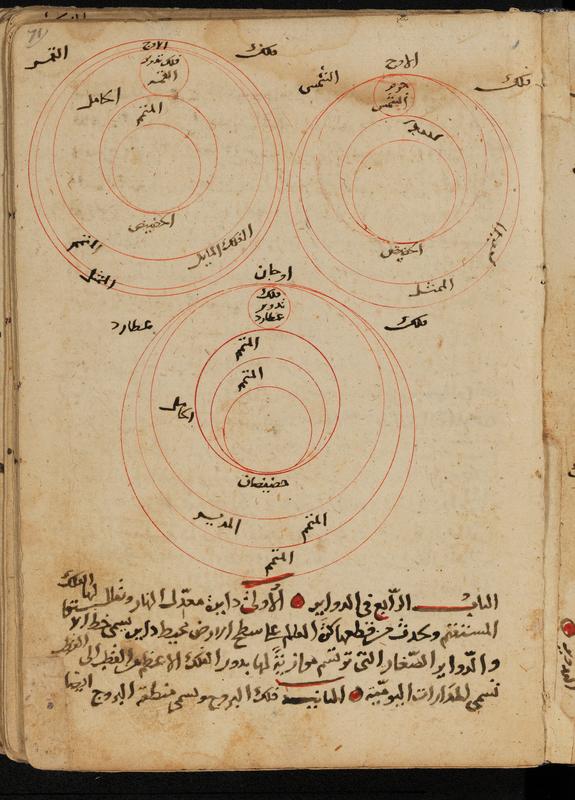 فلك الشمس
الاوج
جرم الشمس
الحضيض
الممثل
فلك القمر
الاوج
فلك تدوير القمر
الحامل
المتمم
الحضيض
الفلك المايل
المتمم
الممثل
فلك عطارد
اوجان
فلك تدوير عطارد
المتمم
المتمم
الحامل
حضيضان
المدير
المتمم
المتمم
الباب الرابع في الدواير الاولى دايرة معدل النهار
المستقيم وتحدث من قطعها كرة العالم على سطح الارض محيط دايرة يسمى خط الا
والدواير الصغار التي ترتسم موازية لها بدور الفلك الاعظم
تسمى المدارات اليومية الثانية فلك البروج ويسمى منطقة البروج ايضا